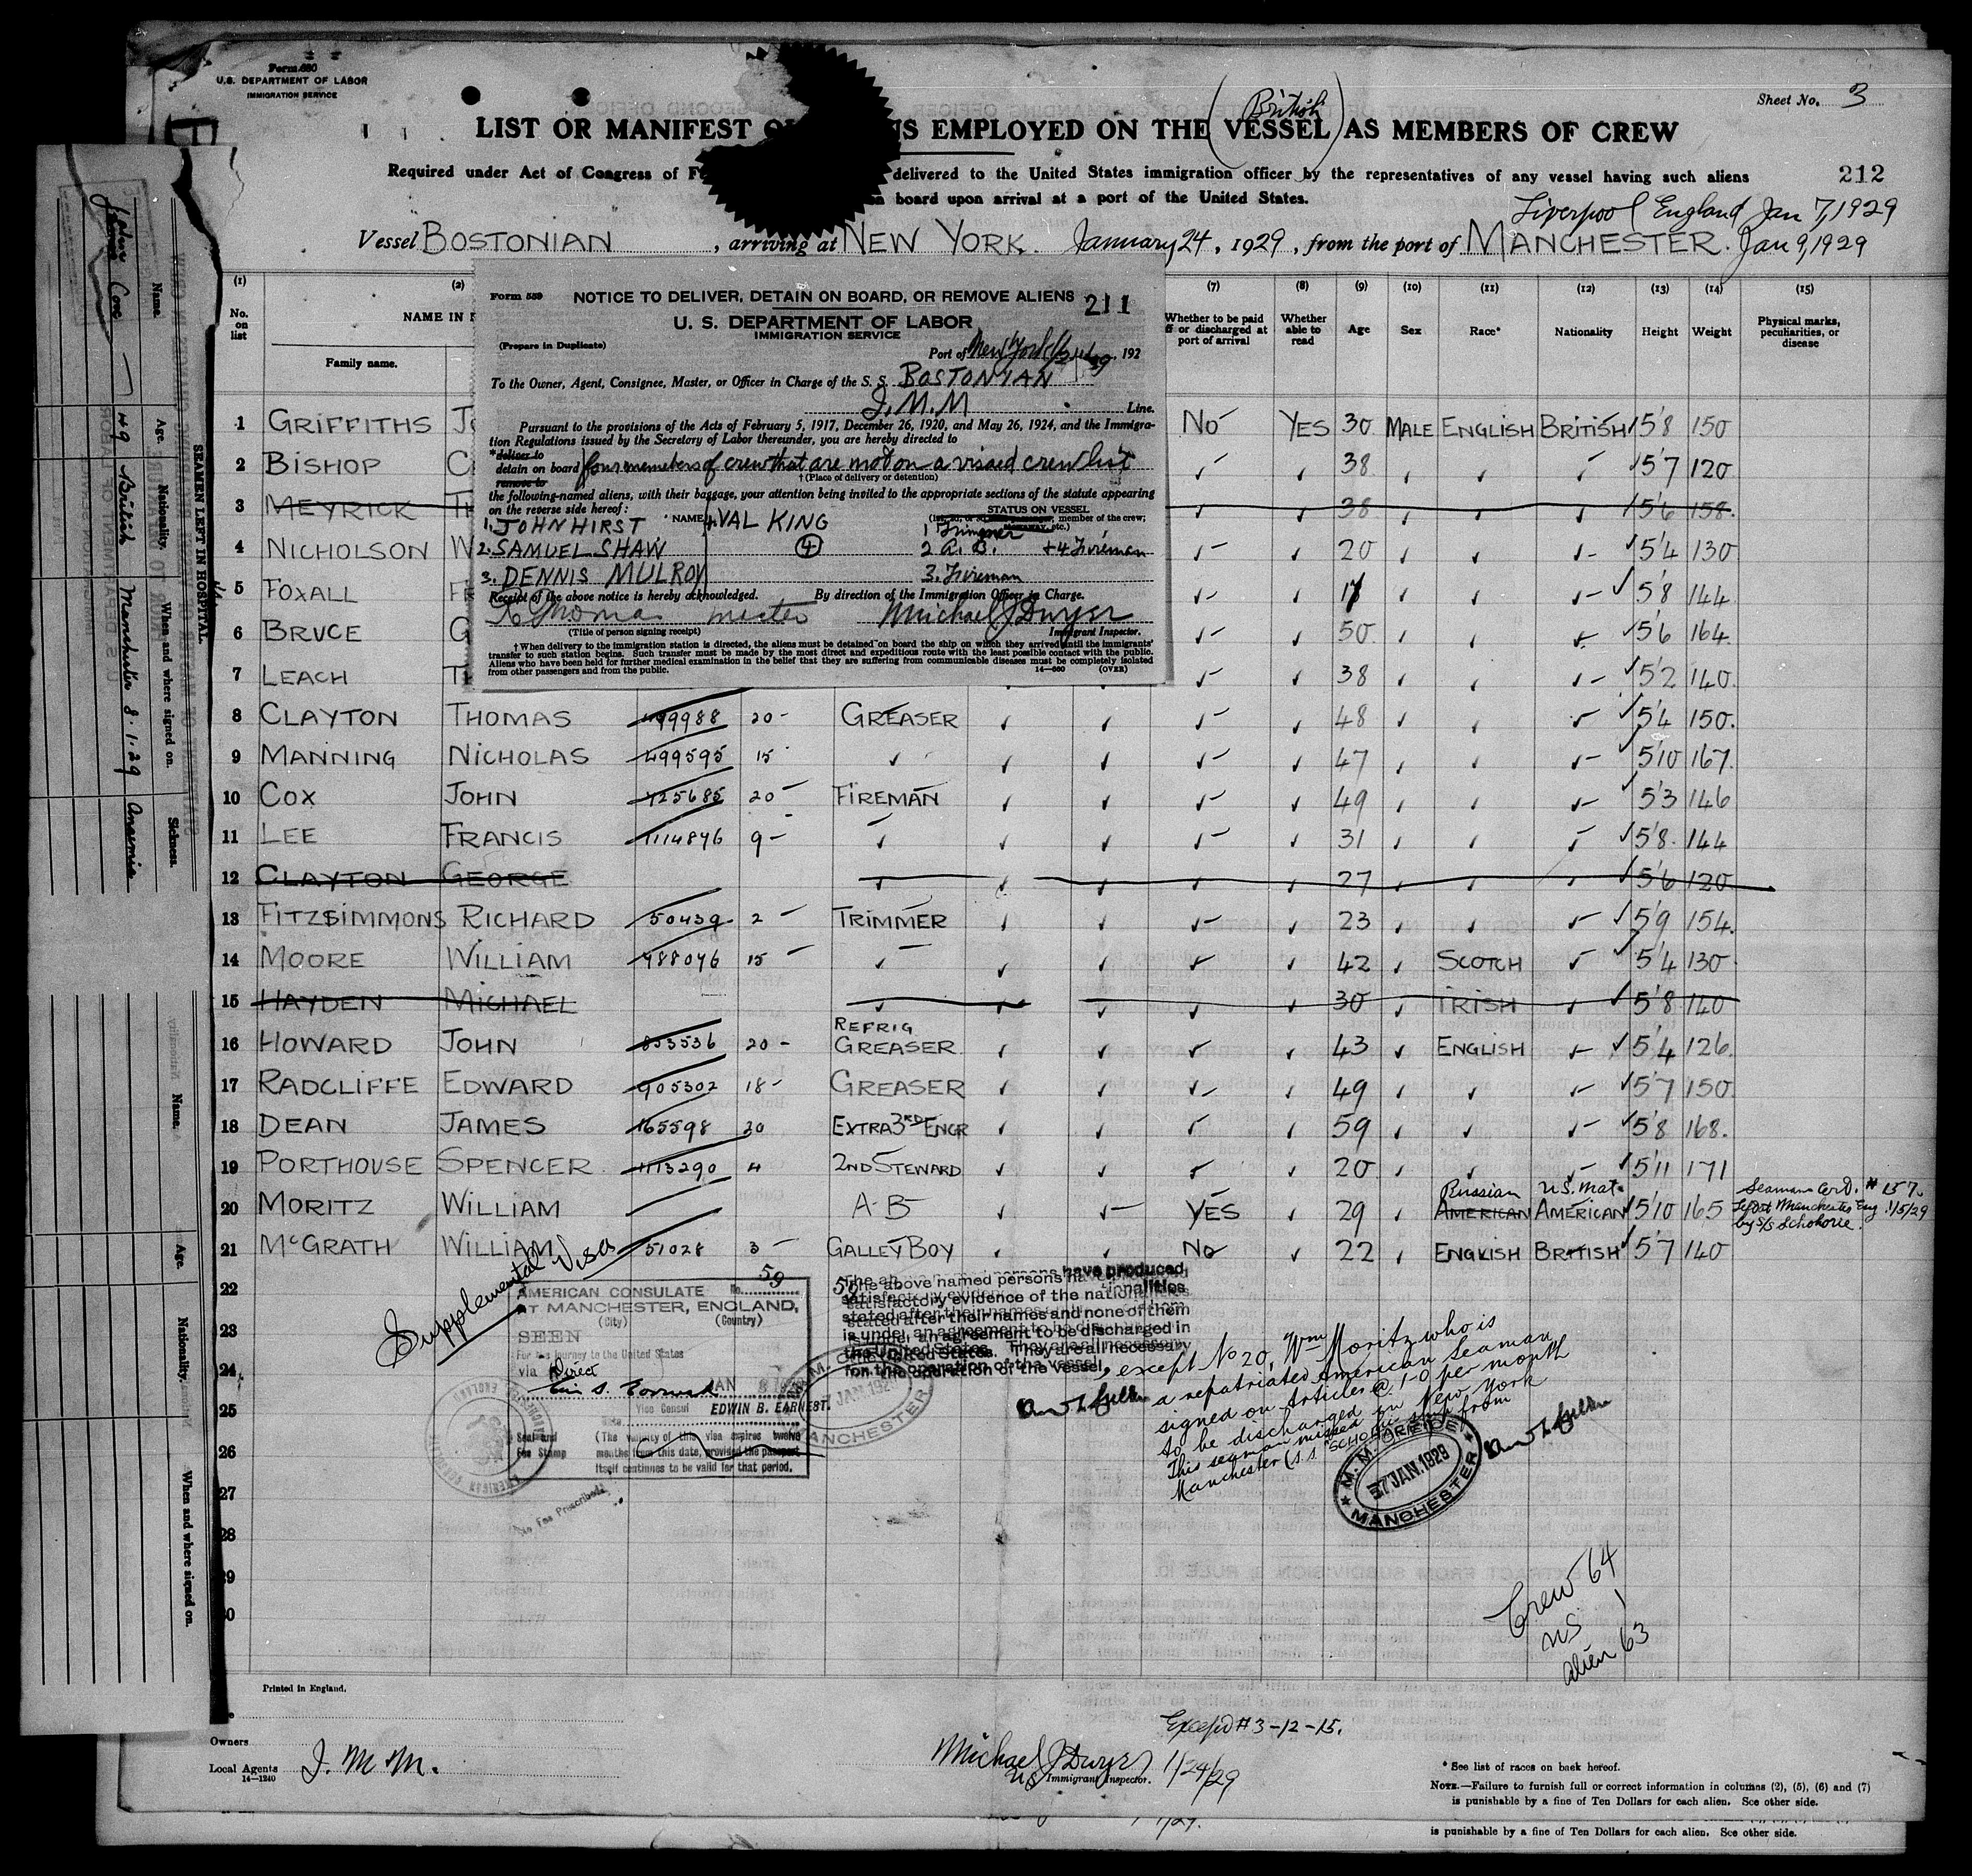 Form 680
U.S. DEPARTMENT OF LABOR
IMMIGRATION SERVICE
Sheet No. 3
(British)
LIST OR MANIFEST O NS EMPLOYED ON THE VESSEL AS MEMBERS OF CREW
Required under Act of Congress of F delivered to the United States immigration officer by the representatives of any vessel having such aliens
212
board upon arrival at a port of the United States.
Liverpool England Jan 7, 1929
Vessel BOSTONIAN, arriving at NEW YORK. January 24, 1929, from the port of MANCHESTER. Jan 9, 1929
(1) (2) (7) (8) (9) (10) (11) (12) (13) (14) (15)
No. on list NAME IN F Whether to be paid off or discharged at port of arrival Whether able to read Age Sex Race* Nationality Height Weight Physical marks, peculiarities, or disease
Family name.
Form 559 NOTICE TO DELIVER, DETAIN ON BOARD, OR REMOVE ALIENS 211
U. S. DEPARTMENT OF LABOR
IMMIGRATION SERVICE
(Prepare in Duplicate)
Port of New York 192
To the Owner, Agent, Consignee, Master, or Officer in Charge of the S. S. BOSTONIAN
I.M.M Line.
Pursuant to the provisions of the Acts of February 5, 1917, December 26, 1920, and May 26, 1924, and the Immigra-
tion Regulations issued by the Secretary of Labor thereunder, you are hereby directed to
*deliver to
detain on board four members of crew that are not on a visaed crew list
remove to
†(Place of delivery or detention)
the following-named aliens, with their baggage, your attention being invited to the appropriate sections of the statute appearing
on the reverse side hereof:
NAME STATUS ON VESSEL
member of the crew;
1. JOHN HIRST 4. VAL KING 1 Trimmer
2. SAMUEL SHAW (4) 2 A. B. +4 Fireman
3. DENNIS MULROY 3. Fireman
Receipt of the above notice is hereby acknowledged. By direction of the Immigration Officer in Charge.
Thomas master Michael J Dwyer
(Title of person signing receipt) Immigrant Inspector.
†When delivery to the immigration station is directed, the aliens must be detained on board the ship on which they arrived until the immigrants'
transfer to such station begins. Such transfer must be made by the most direct and expeditious route with the least possible contact with the public.
Aliens who have been held for further medical examination in the belief that they are suffering from communicable diseases must be completely isolated
from other passengers and from the public. 14—660 (OVER)
1 GRIFFITHS J No YES 30 MALE ENGLISH BRITISH 5'8 150
2 BISHOP C 38 5'7 120
3 MEYRICK T 38 5'6 158
4 NICHOLSON W 20 5'4 130
5 FOXALL F 17 5'8 144
6 BRUCE G 50 5'6 164
7 LEACH T 38 5'2 140
8 CLAYTON THOMAS 499988 20 GREASER 48 5'4 150
9 MANNING NICHOLAS 499595 15 47 5'10 167
10 COX JOHN 425685 20 FIREMAN 49 5'3 146
11 LEE FRANCIS 1114876 9 31 5'8 144
12 CLAYTON GEORGE 27 5'6 120
13 FITZSIMMONS RICHARD 50439 2 TRIMMER 23 5'9 154
14 MOORE WILLIAM 988046 15 42 SCOTCH 5'4 130
15 HAYDEN MICHAEL 30 IRISH 5'8 140
16 HOWARD JOHN 853536 20 REFRIG GREASER 43 ENGLISH 5'4 126
17 RADCLIFFE EDWARD 905302 18 GREASER 49 5'7 150
18 DEAN JAMES 165598 20 EXTRA 3RD ENGR 59 5'8 168
19 PORTHOUSE SPENCER 1113290 4 2ND STEWARD 20 5'11 171
20 MORITZ WILLIAM A-B YES 29 Russian AMERICAN U.S. Nat. AMERICAN 5'10 165 Seamans Cert. # 157 Left Manchester Eng 1/5/29 by S/S Schoharie.
21 McGRATH WILLIAM 51028 3 GALLEY BOY No 22 ENGLISH BRITISH 5'7 140
22
23
24
25
26
27
28
29
30
Supplemental Visa
AMERICAN CONSULATE No. 59
AT MANCHESTER, ENGLAND,
(City) (Country)
SEEN
For the journey to the United States
via Direct
JAN 8
Vice Consul EDWIN B. EARNEST.
Seal and Fee Stamp
(The validity of this visa expires twelve
months from this date, provided the passport
itself continues to be valid for that period.
No Fee Prescribed
The above named persons have produced
satisfactory evidence of the nationalities
stated after their names and none of them
is under an agreement to be discharged in
the United States. They are all necessary
for the operation of the vessel, except No 20, Wm Moritz who is
a repatriated American Seaman
signed on Articles @ 1-0 per month
to be discharged in New York
This seaman missed his ship from
Manchester (s.s. "SCHOHARIE")
M.M. OFFICE
7 JAN. 1929
MANCHESTER
Crew 64
US 1
Alien 63
Printed in England.
Owners
Local Agents I. M M.
14—1240
Except # 3-12-15.
Michael J Dwyer 1/24/29
US Immigrant Inspector.
* See list of races on back hereof.
NOTE.—Failure to furnish full or correct information in columns (2), (5), (6) and (7)
is punishable by a fine of Ten Dollars for each alien. See other side.
is punishable by a fine of Ten Dollars for each alien. See other side.
SEAMEN LEFT IN HOSPITAL.
Name. Age. Nationality. When and where signed on. Sickness.
John 49 British Manchester 8.1.29 Anaemia
Name. Age. Nationality. When and where signed on.